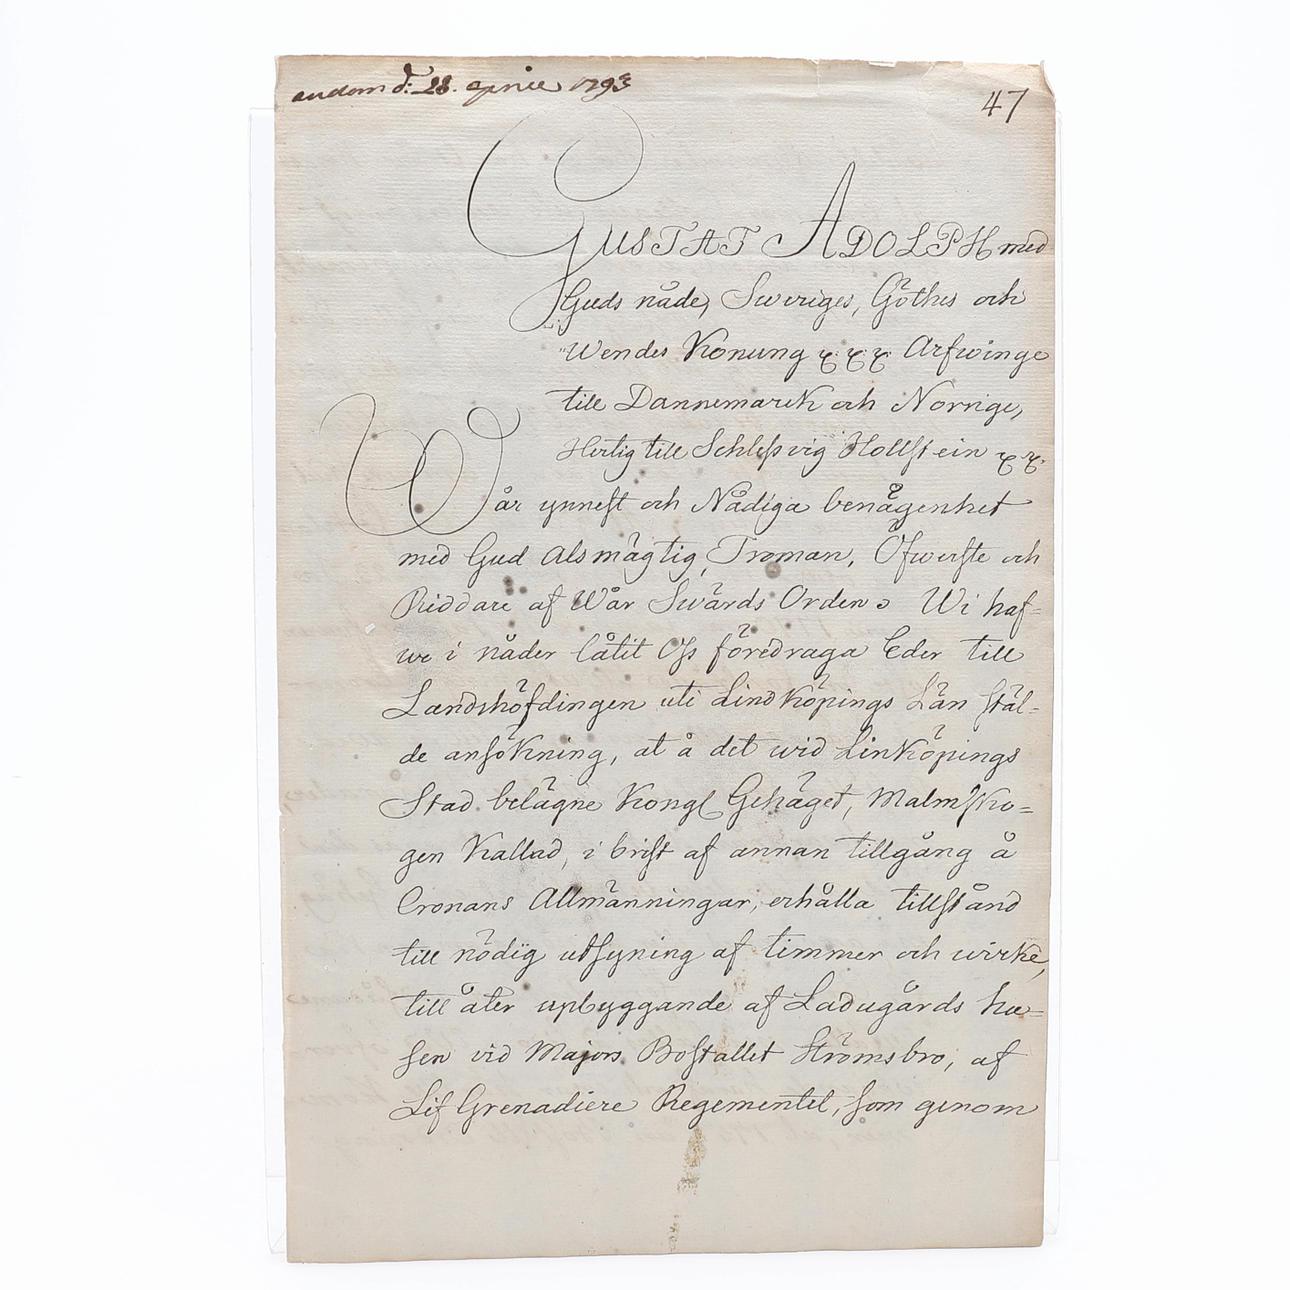 d: 28. Aprill 1793
47
GUSTAF ADOLPH med
Guds nåde, Sweriges, Göthes och
Wendes Konung &. &. &. Arfwinge
till Dannemarck och Norrige,
Hertig till Schleßwig Hollstein &. &.
Wår ynnest och Nådiga benägenhet
med Gud alsmägtig, Troman, Öfwerste och
Riddare af Wår Swärds Orden. Wi haf=
we i nåder låtit Oss föredraga Eder till
Landshöfdingen uti Lindköpings Län stäl=
de ansökning, at å det wid Linköpings
Stad belägne Kongl Gehäget, Malmsko=
gen Kallad, i brist af annan tillgång å
Cronans Allmänningar, erhålla tillstånd
till nödig utsyning af timmer och wirke,
till åter upbyggande af Ladugårds hu=
sen vid Majors Bostället Strömsbro, af
Lif Grenadiere Regementet, som genom